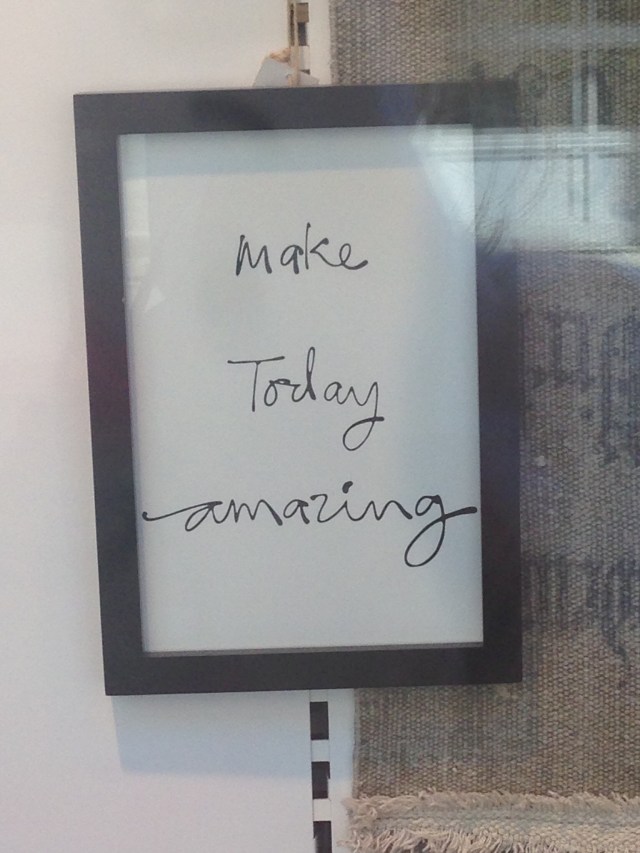 make
Today
amazing